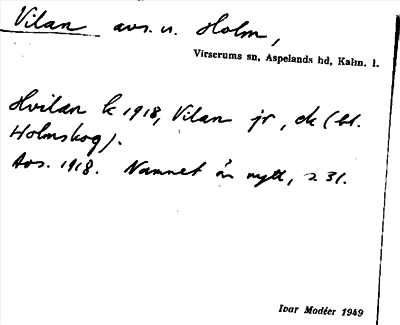 Vilan avs. u. Holm,
Virserums sn, Aspelands hd, Kalm. l.
Hvilan k 1918, Vilan jr, ek (bl.
Holmskog).
Avs. 1918. Namnet är nytt, s. 31.
Ivar Modéer 1949